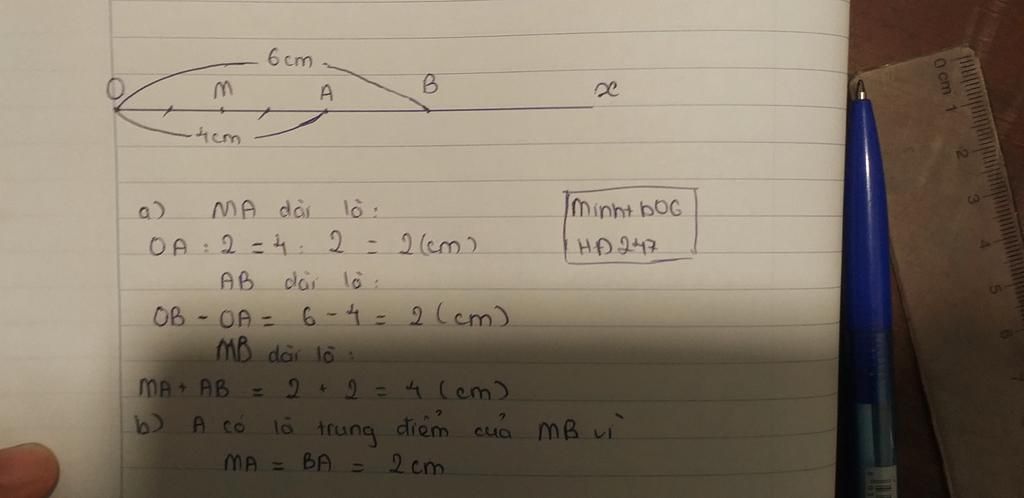 6cm
O M A B x
4cm
a) MA dài là:
OA : 2 = 4 : 2 = 2(cm)
AB dài là:
OB - OA = 6 - 4 = 2 (cm)
MB dài là:
MA + AB = 2 + 2 = 4 (cm)
b) A có là trung điểm của MB vì
MA = BA = 2cm
HĐ247
0 cm 1
2
3
4
5
6